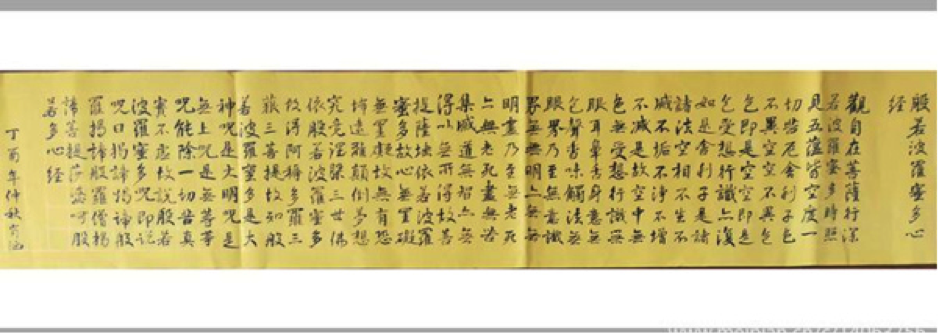 般若波羅蜜多心
經
觀自在菩薩行深
若波羅蜜多時照
見五蘊皆空度一
切苦厄舍利子色
不異空空不異色
色即是空空即是
色受想行識亦復
如是舍利子是諸
諸法空相不生不
滅不垢不淨不增
不減是故空中無
色無受想行識無
眼耳鼻舌身意無
色聲香味觸法無
眼界乃至無意識
界無無明亦無無
明盡乃至無老死
亦無老死盡無苦
集滅道無智亦無
得以無所得故菩
提薩埵依若波羅
蜜多故心無罣礙
無罣礙故無有恐
怖遠離顛倒夢想
究竟涅槃三世佛
依般若波羅蜜多
故得阿耨多羅三
藐三菩提故知般
若波羅蜜多是大
神咒是大明咒是
無上咒是無等等
咒能除一切苦真
實不虛故說般若
波羅蜜多咒即說
咒曰揭諦揭諦般
羅揭諦般羅僧揭
諦菩提薩婆訶般
若多心經
丁酉年仲秋